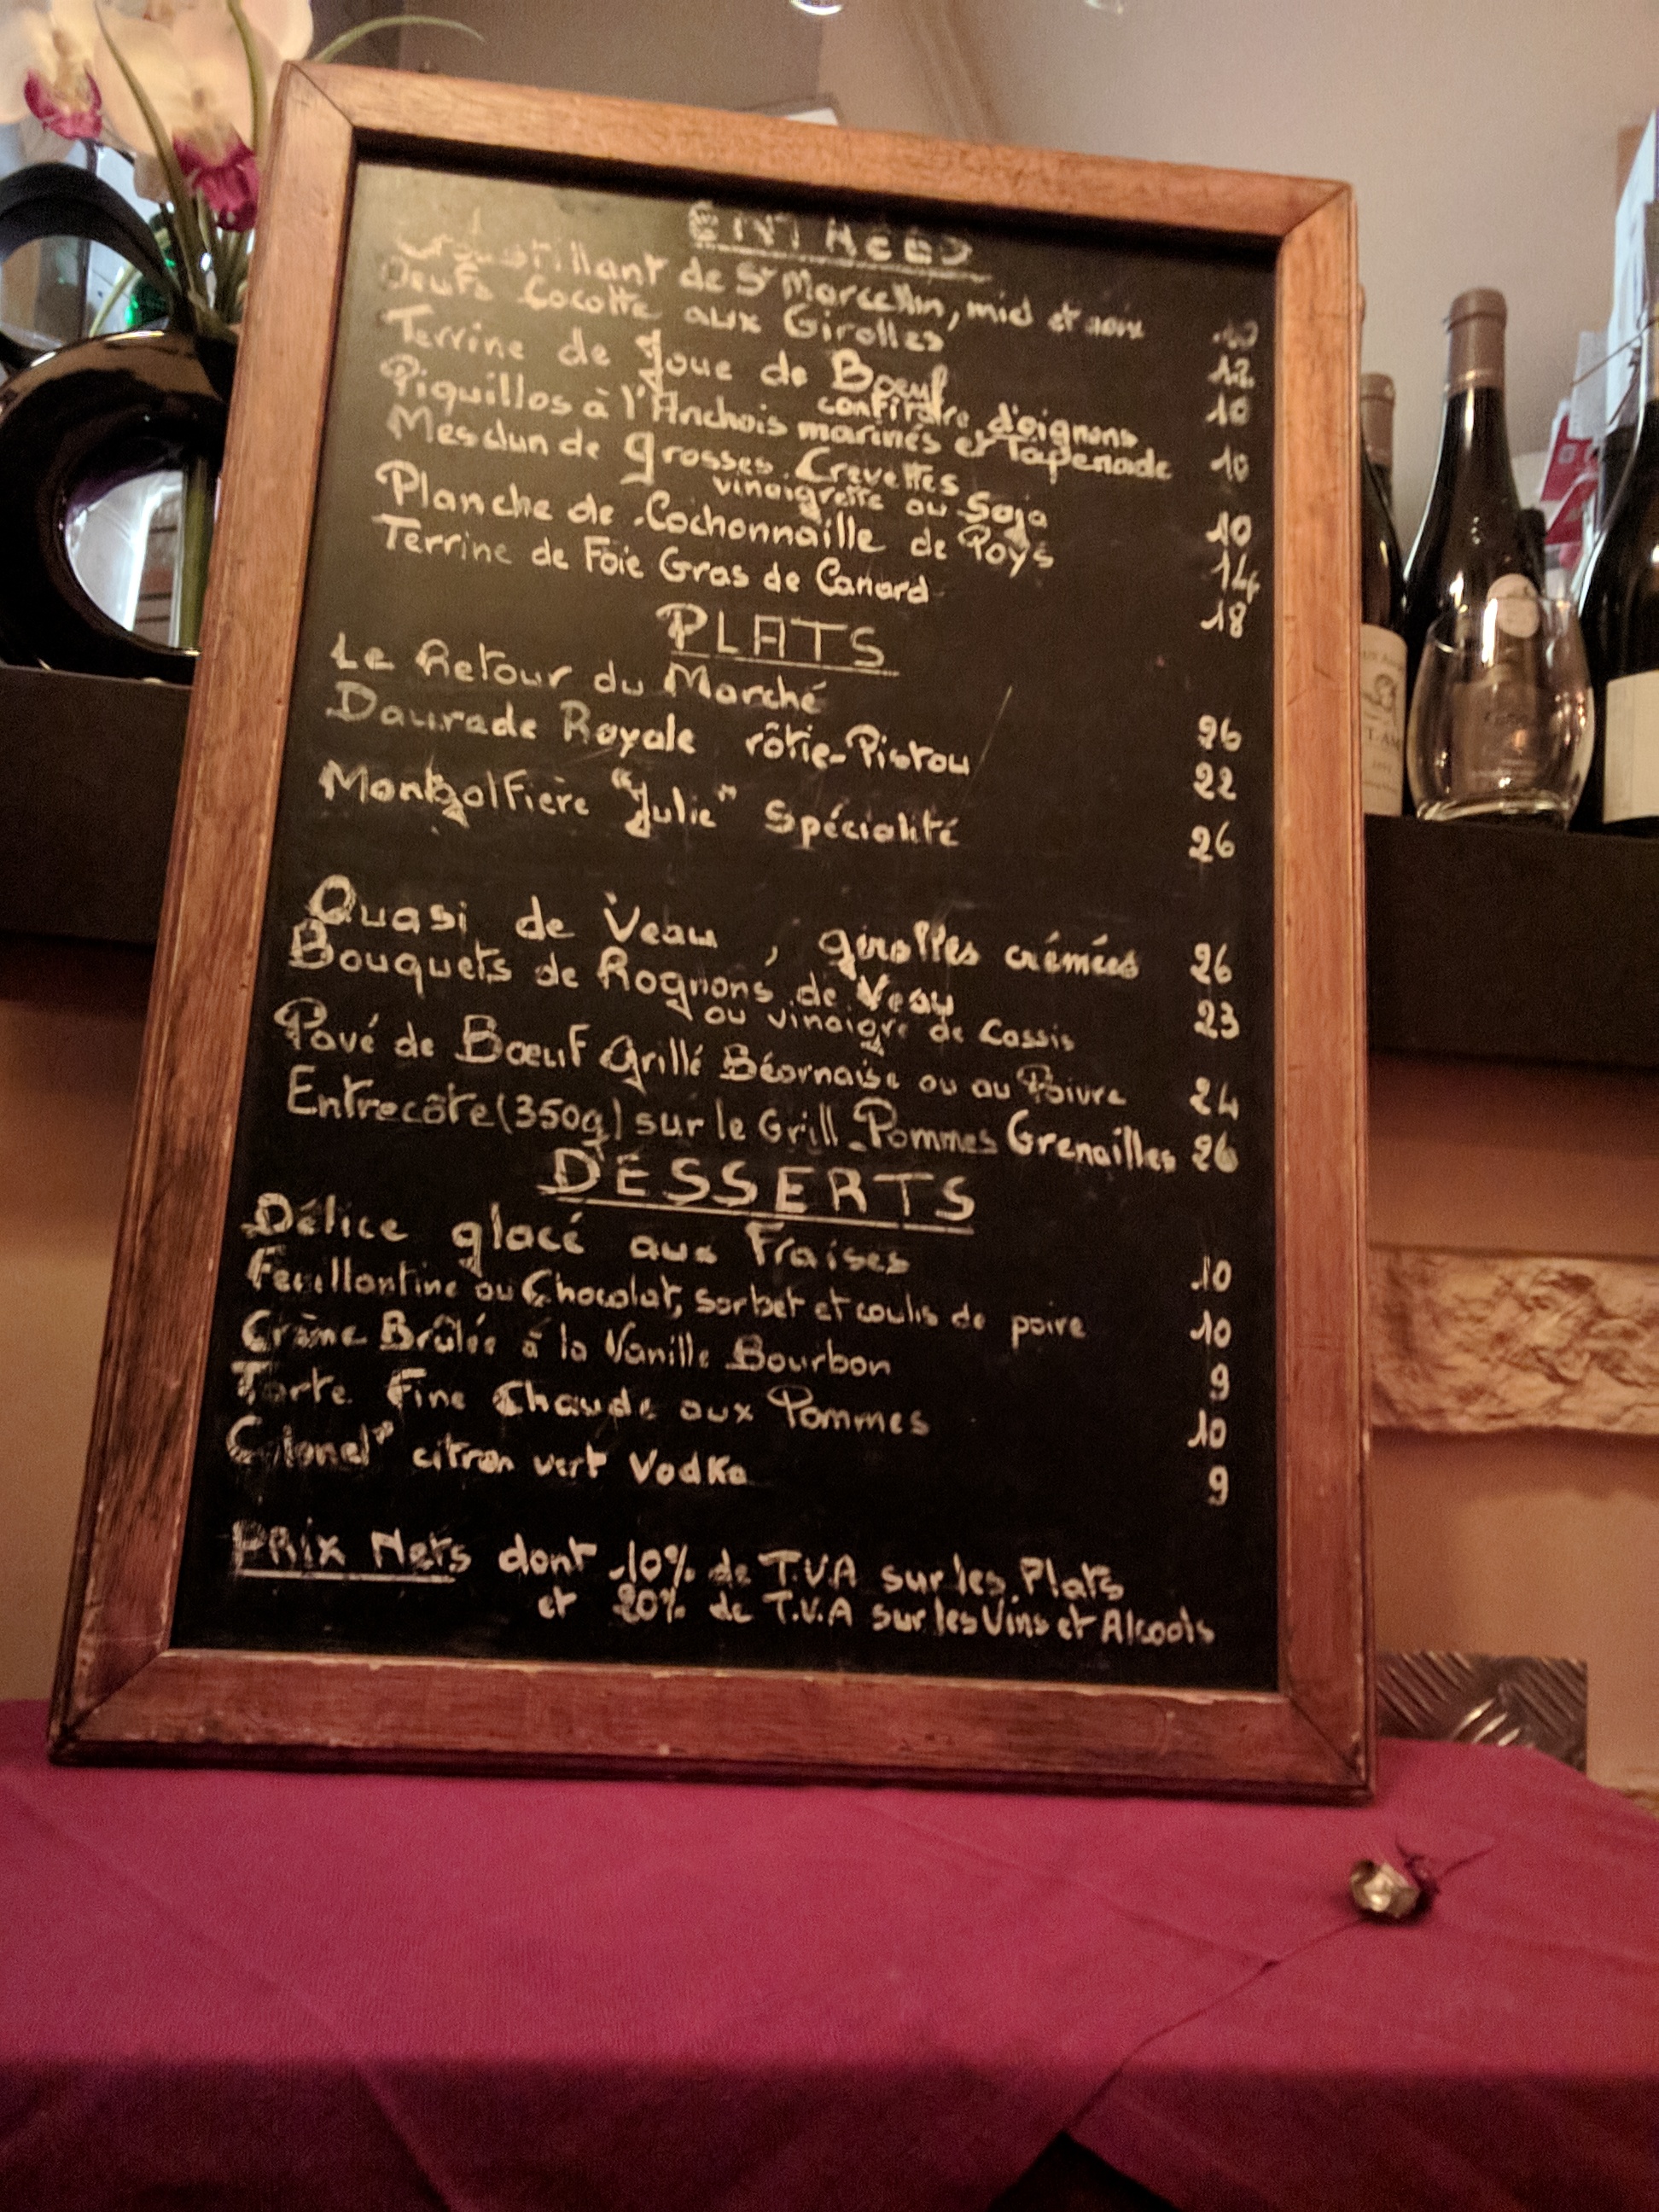 ENTRÉES
Croustillant de St Marcellin, miel et noix 10
Oeufs Cocotte aux Girolles 12
Terrine de Joue de Boeuf 10
confiture d'oignons
Piquillos à l'Anchois marinés et Tapenade 10
Mesclun de grosses Crevettes 10
vinaigrette au Soja
Planche de Cochonnaille de Pays 14
Terrine de Foie Gras de Canard 18
PLATS
Le Retour du Marché 26
Daurade Royale rôtie-Pistou 22
Montgolfière "Julie" Spécialité 26
Quasi de Veau, girolles crémées 26
Bouquets de Rognons de Veau 23
au vinaigre de Cassis
Pavé de Bœuf Grillé Béarnaise ou au Poivre 24
Entrecôte (350g) sur le Grill-Pommes Grenailles 26
DESSERTS
Délice glacé aux Fraises 10
Feuillantine au Chocolat, sorbet et coulis de poire 10
Crème Brûlée à la Vanille Bourbon 9
Tarte Fine Chaude aux Pommes 10
Colonel" citron vert Vodka 9
PRIX Nets dont 10% de T.V.A sur les Plats
et 20% de T.V.A sur les Vins et Alcools